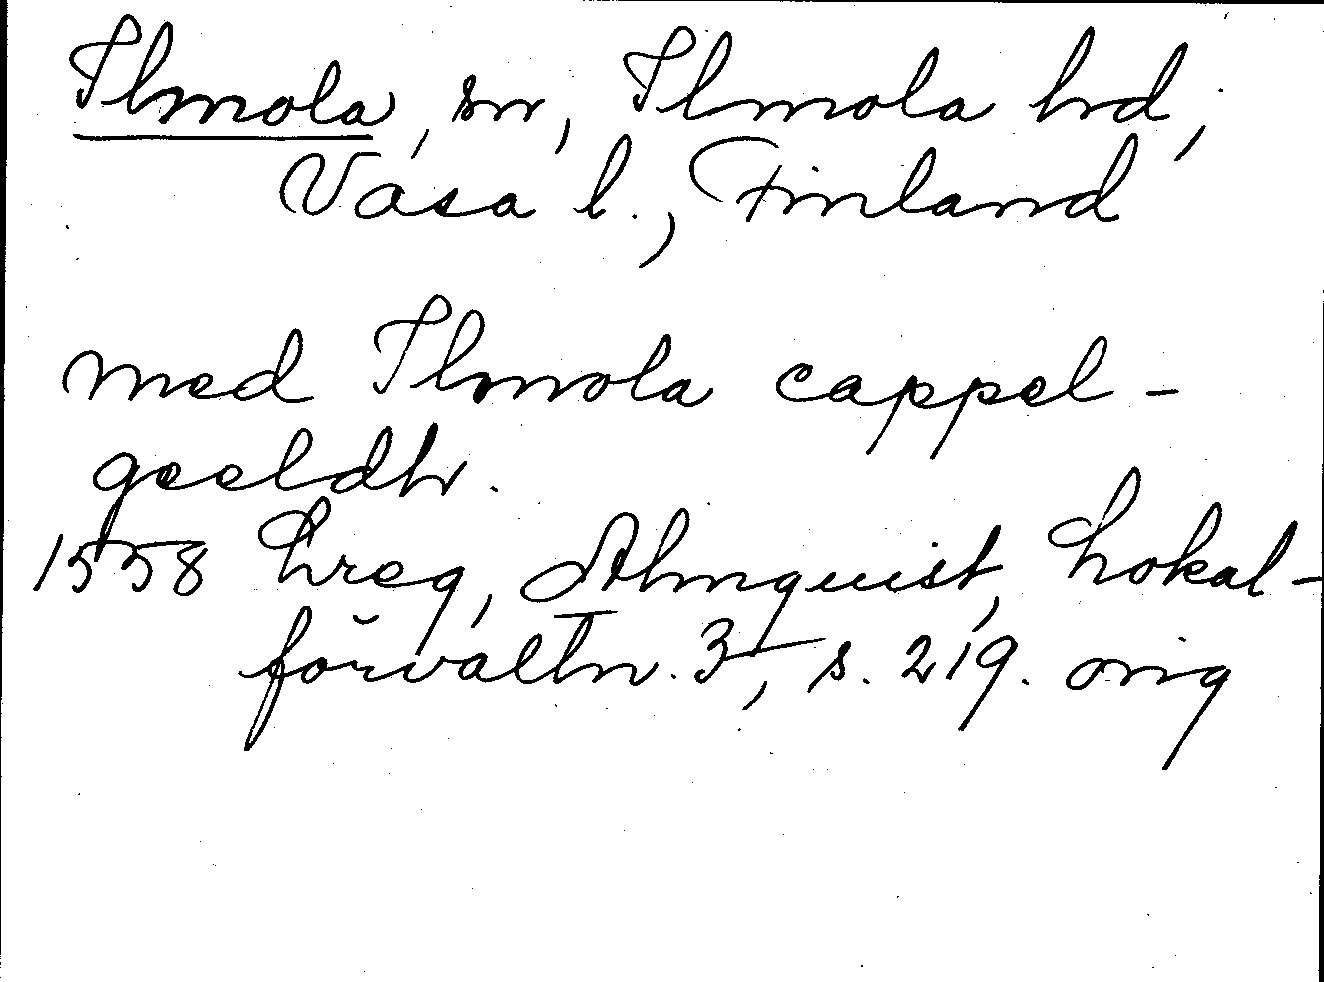 Ilmola, sn, Ilmola hrd,
Vasa l., Finland
med Ilmola cappel-
geeldh.
1558 Lreg, Almquist, Lokal-
förvaltn. 3, s. 219. orig